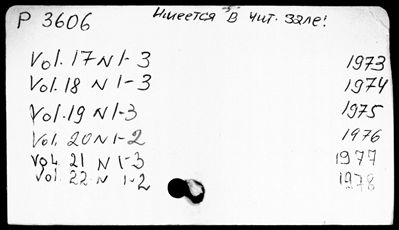 P 3606 Имеется в чит. зале!
Vol. 17 N 1-3 1973
Vol. 18 N 1-3 1974
Vol. 19 N 1-3 1975
Vol. 20 N 1-2 1976
Vol. 21 N 1-3 1977
Vol. 22 N 1-2 1978